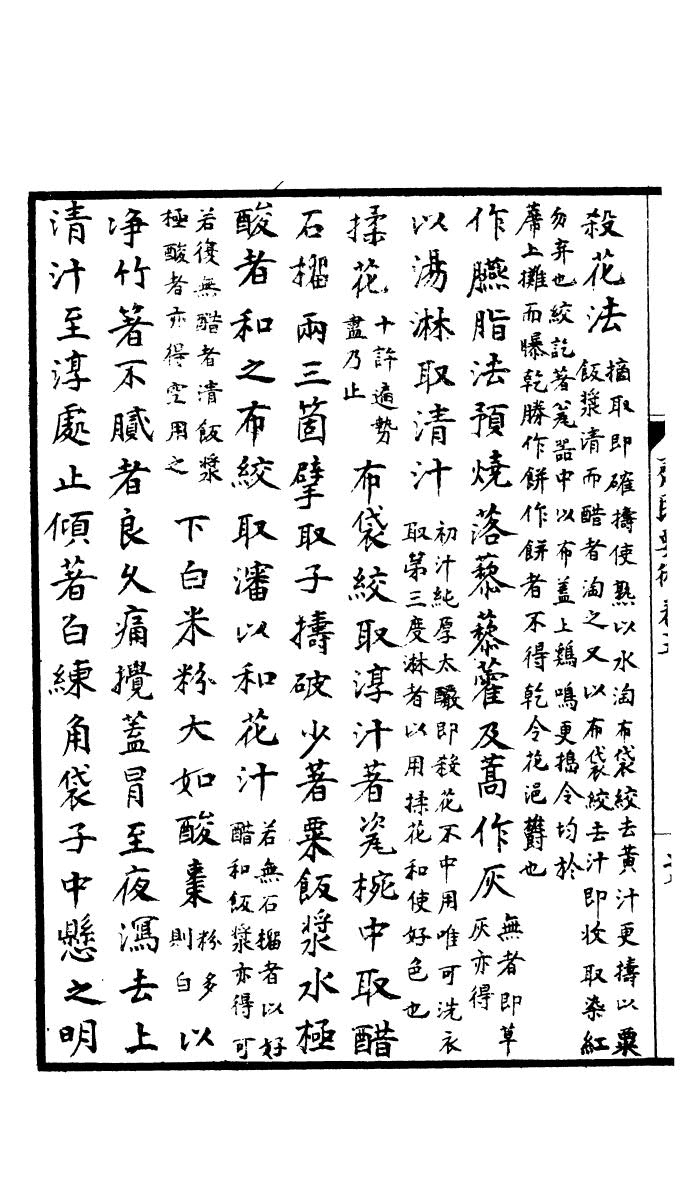 殺花法摘取即碓擣使熟以水淘布袋絞去黄汁更擣以粟
飯漿清而醋者淘之又以布袋絞去汁即收取染紅
勿弃也絞訖著瓮器中以布蓋上鷄鳴更搗令均於
蓆上攤而曝乾勝作餅作餅者不得乾令花浥欝也
作臙脂法預燒落藜藜藋及蒿作灰無者即草
灰亦得
以湯淋取清汁初汁純厚太釅即殺花不中用唯可洗衣
取第三度淋者以用揉花和使好色也
揉花十許遍勢
盡乃止布袋絞取淳汁著瓷椀中取醋
石榴兩三箇擘取子擣破少著粟飯漿水極
酸者和之布絞取瀋以和花汁若無石榴者以好
醋和飯漿亦得可
若復無醋者清飯漿
極酸者亦得空用之下白米粉大如酸棗粉多
則白以
净竹箸不膩者良久痛攪蓋冒至夜瀉去上
清汁至淳處止傾著白練角袋子中懸之明